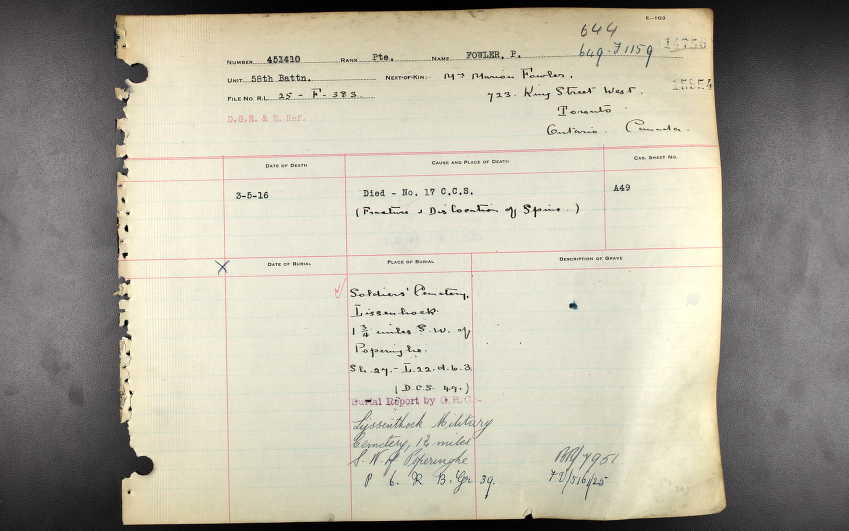 E-103
644
649-F1159
NUMBER 451410 RANK Pte. NAME FOWLER, P.
UNIT 58th Battn. NEXT-OF-KIN:- Mrs Marion Fowler,
FILE NO. R.L. 25 - F - 383 723. King Street West.
D.G.R. & E. Ref. Toronto
Ontario. Canada.
DATE OF DEATH CAUSE AND PLACE OF DEATH CAS. SHEET NO.
3-5-16 Died - No. 17 C.C.S. A49
(Fracture & Dislocation of Spine.)
X DATE OF BURIAL PLACE OF BURIAL DESCRIPTION OF GRAVE
Soldiers' Cemetery,
Lissenhoek
1 3/4 miles S.W. of
Poperinghe.
Sh. 27.- L.22.d.6.3
(D.C.S. 49.)
Burial Report by G.R.C.-
Lijssenthoek Military
Cemetery, 1¾ miles
S. W. of Poperinghe
P 6. R B. Gr 39.
BR/7951